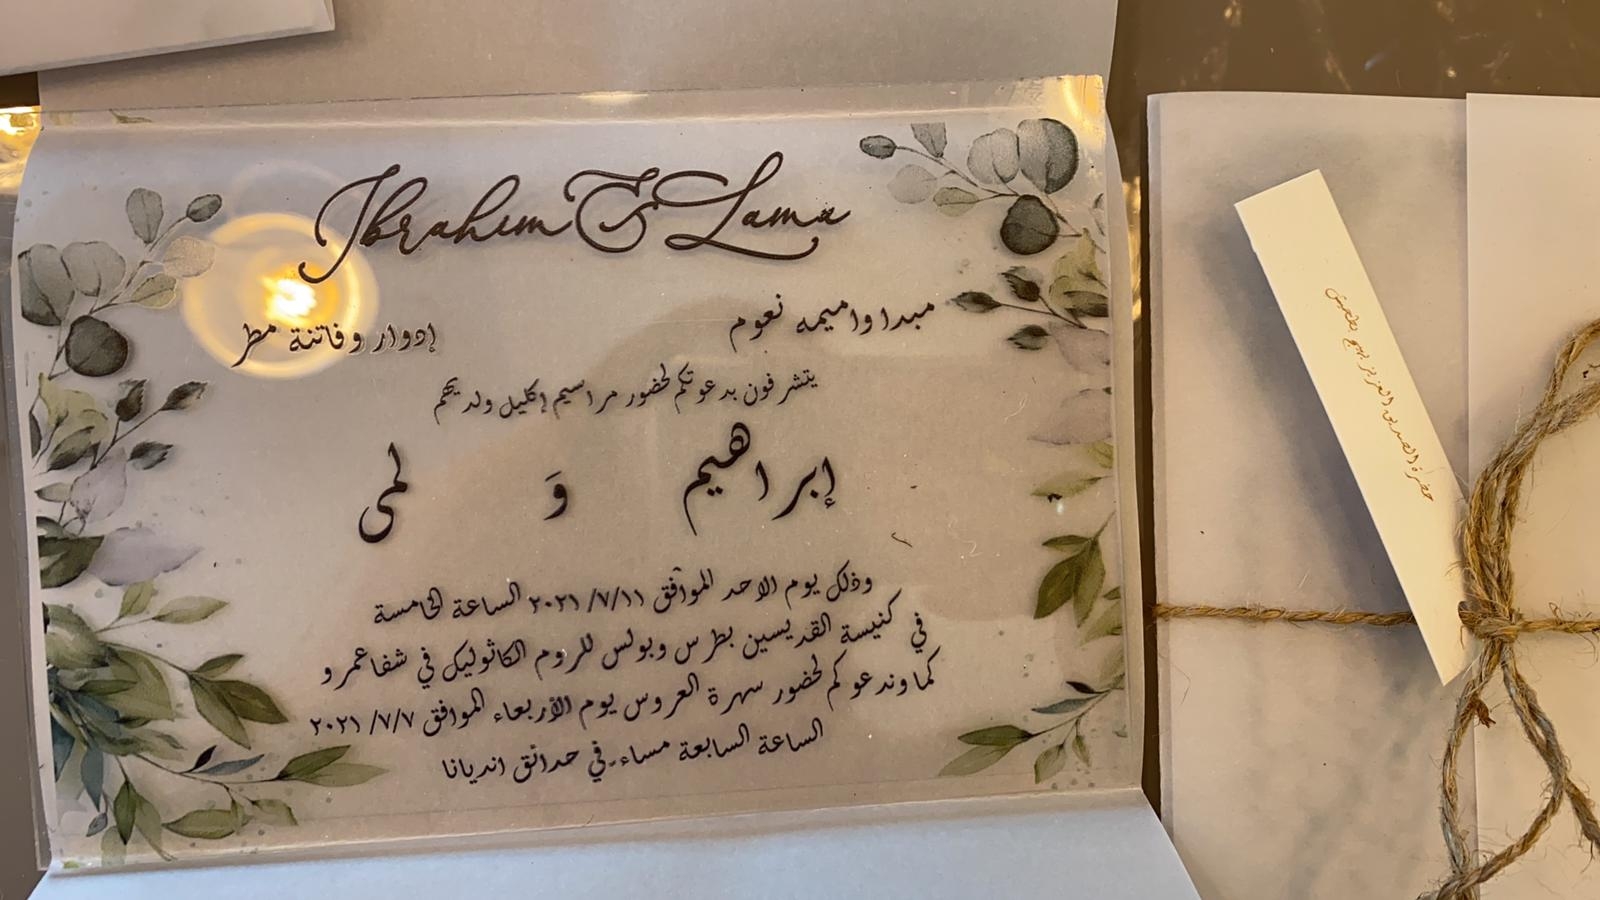 Ibrahim & Lama
مبدا واميمه نعوم
إدوار وفاتنة مطر
يتشرفون بدعوتكم لحضور مراسيم إكليل ولديهم
إبراهيم وَ لمى
وذلك يوم الاحد الموافق ٢٠٢١/٧/١١ الساعة الخامسة
في كنيسة القديسين بطرس وبولس للروم الكاثوليك في شفاعمرو
كما وندعوكم لحضور سهرة العروس يوم الأربعاء الموافق ٢٠٢١/٧/٧
الساعة السابعة مساء-في حدائق انديانا
حضرة الصديق العزيز بهيج